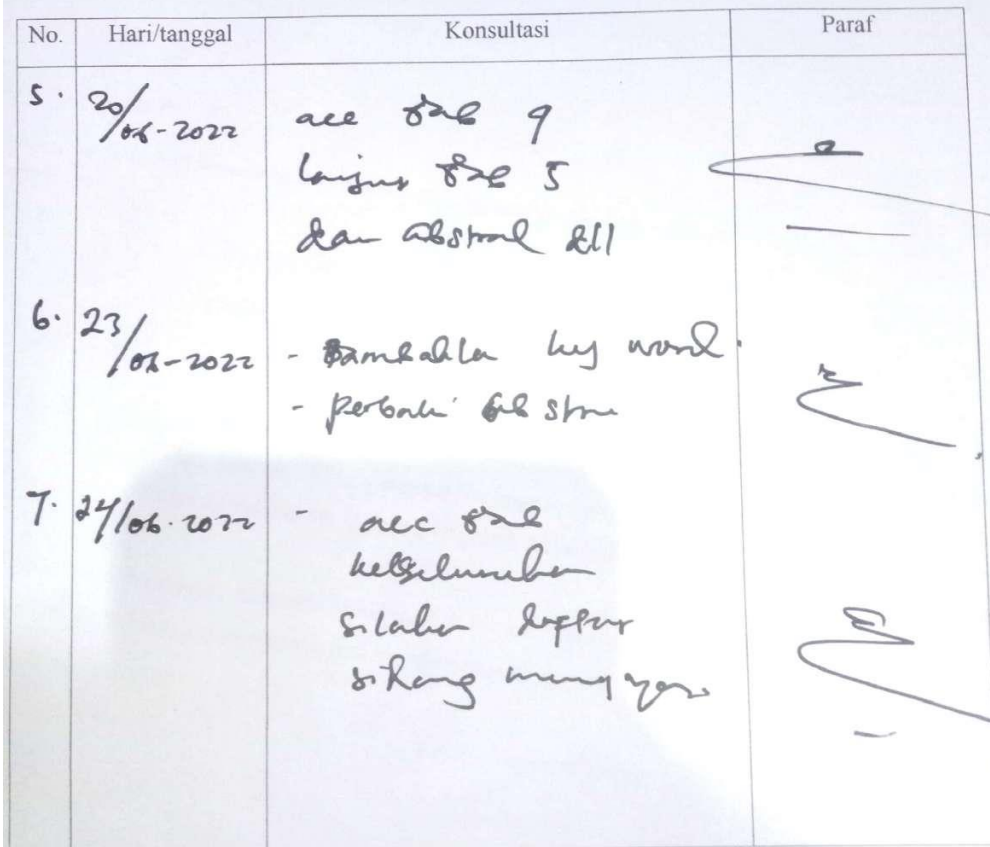 No. Hari/tanggal Konsultasi Paraf
5. 20/06-2022 acc bab 4
lanjut bab 5
dan abstrak dll
6. 23/06-2022 - tambahka key word.
- perbaiki abstra
7. 24/06.2022 - acc bab
keseluruhan
silahkan daftar
sidang munaqasa